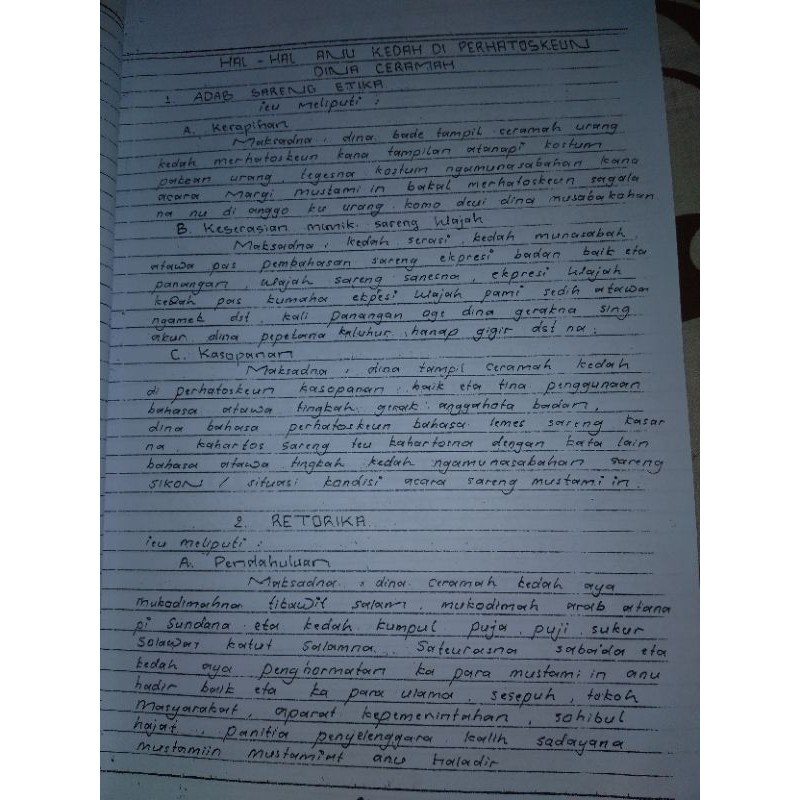 HAL - HAL ANU KEDAH DI PERHATOSKEUN
DINA CERAMAH
1 ADAB SARENG ETIKA
ieu meliputi :
A. Kerapihan
Maksadna : dina bade tampil ceramah urang
kedah merhatoskeun kana tampilan atanapi kostum
pakean urang, tegesna kostum ngamunasabahan kana
acara Margi mustami in bakal merhatoskeun sagala
na nu di anggo ku urang komo deui dina musabakahan
B. Keserasian mimik sareng Wajah
Maksadna : kedah serasi, kedah munasabah
atawa pas pembahasan sareng ekpresi badan baik eta
panangan, wajah sareng sanesna, ekpresi Wajah
kedah pas kumaha ekpesi Wajah pami sedih atawa
ngamek dst, kali panangan oge dina gerakna sing
akur dina pepetana kaluhur, hanap gigir dst na.
C. Kasopanan
Maksadna : dina tampil ceramah kedah
di perhatoskeun kasopanan baik eta tina penggunaan
bahasa atawa tingkah gerak anggahota badan,
dina bahasa perhatoskeun bahasa lemes sareng kasar
na, kahartos sareng teu kahartosna dengan kata lain
bahasa atawa tingkah kedah ngamunasabahan sareng
SIKON / situasi kondisi acara sareng mustami in.
2. RETORIKA
ieu meliputi :
A. Pendahuluan
Maksadna : dina ceramah kedah aya
mukodimahna titawil salam, mukodimah arab atana
pi sundana eta kedah kumpul puja, puji, sukur
Solawat katut salamna. Sateurasna sabaida eta
kedah aya penghormatan ka para mustami in anu
hadir baik eta ka para ulama, sesepuh, tokoh
Masyarakat, aparat kepemerintahan, sohibul
hajat, panitia penyelenggara kalih sadayana
mustamiin mustamiat anu haladir